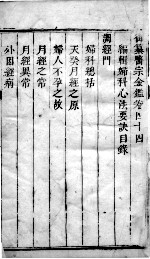 御纂醫宗金鑑卷四十四
編輯婦科心法要訣目錄
調經門
婦科總括
天癸月經之原
婦人不孕之故
月經之常
月經異常
外因經病